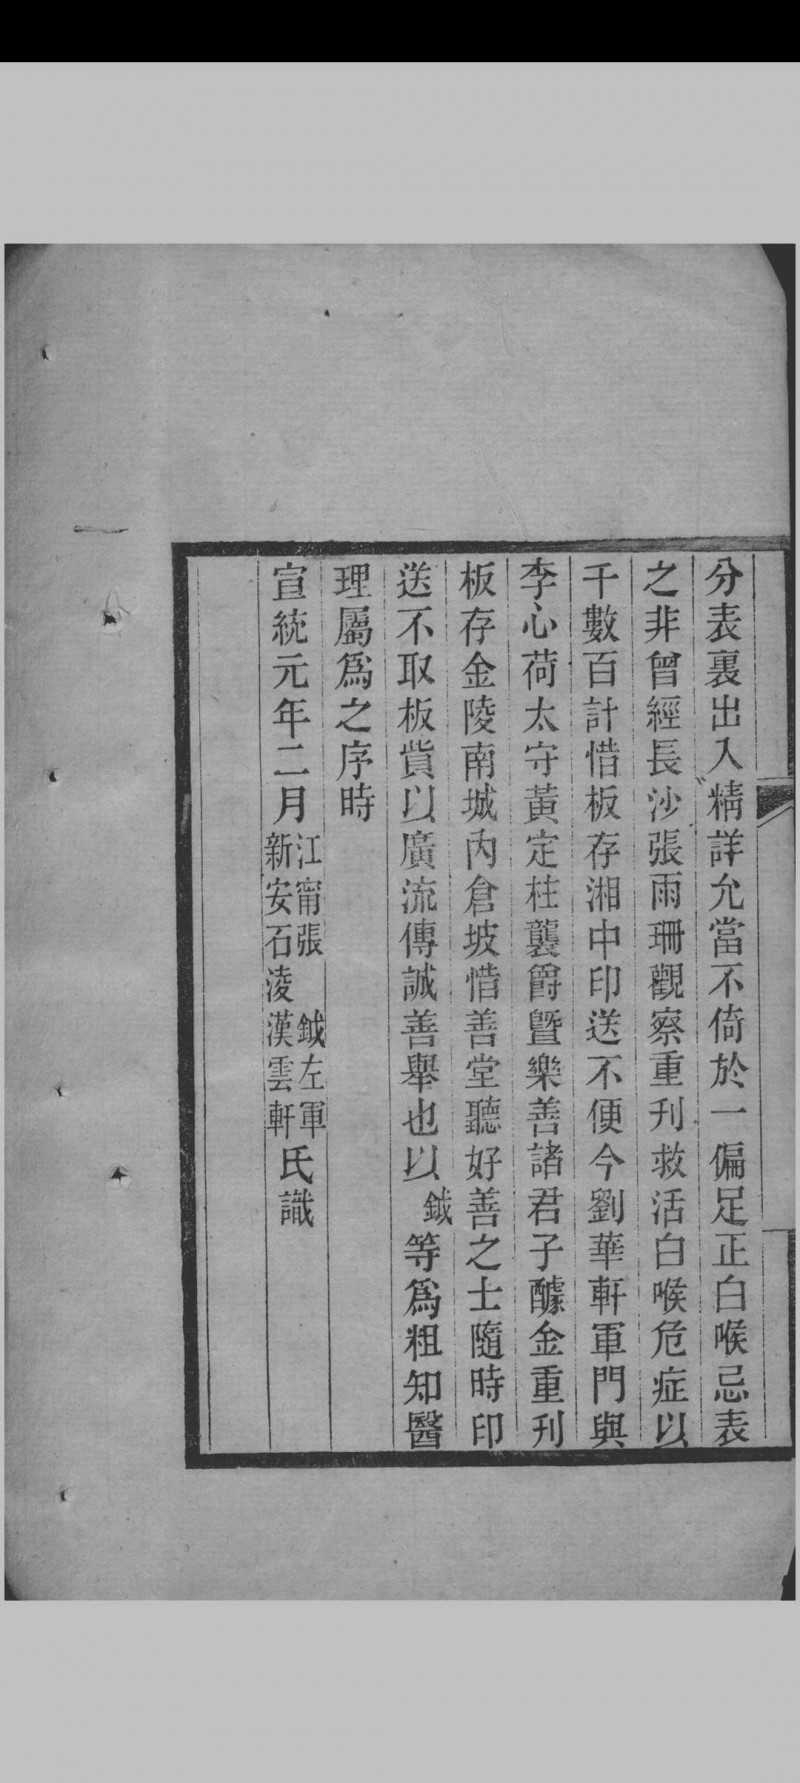 分表裏出入精詳允當不倚於一偏足正白喉忌表
之非曾經長沙張雨珊觀察重刋救活白喉危症以
千數百計惜板存湘中印送不便今劉華軒軍門與
李心荷太守黃定柱襲爵曁樂善諸君子醵金重刋
板存金陵南城內倉坡惜善堂聽好善之士隨時印
送不取板貲以廣流傳誠善舉也以鉞等爲粗知醫
理屬爲之序時
宣統元年二月江甯張鉞左軍新安石淩漢雲軒氏識